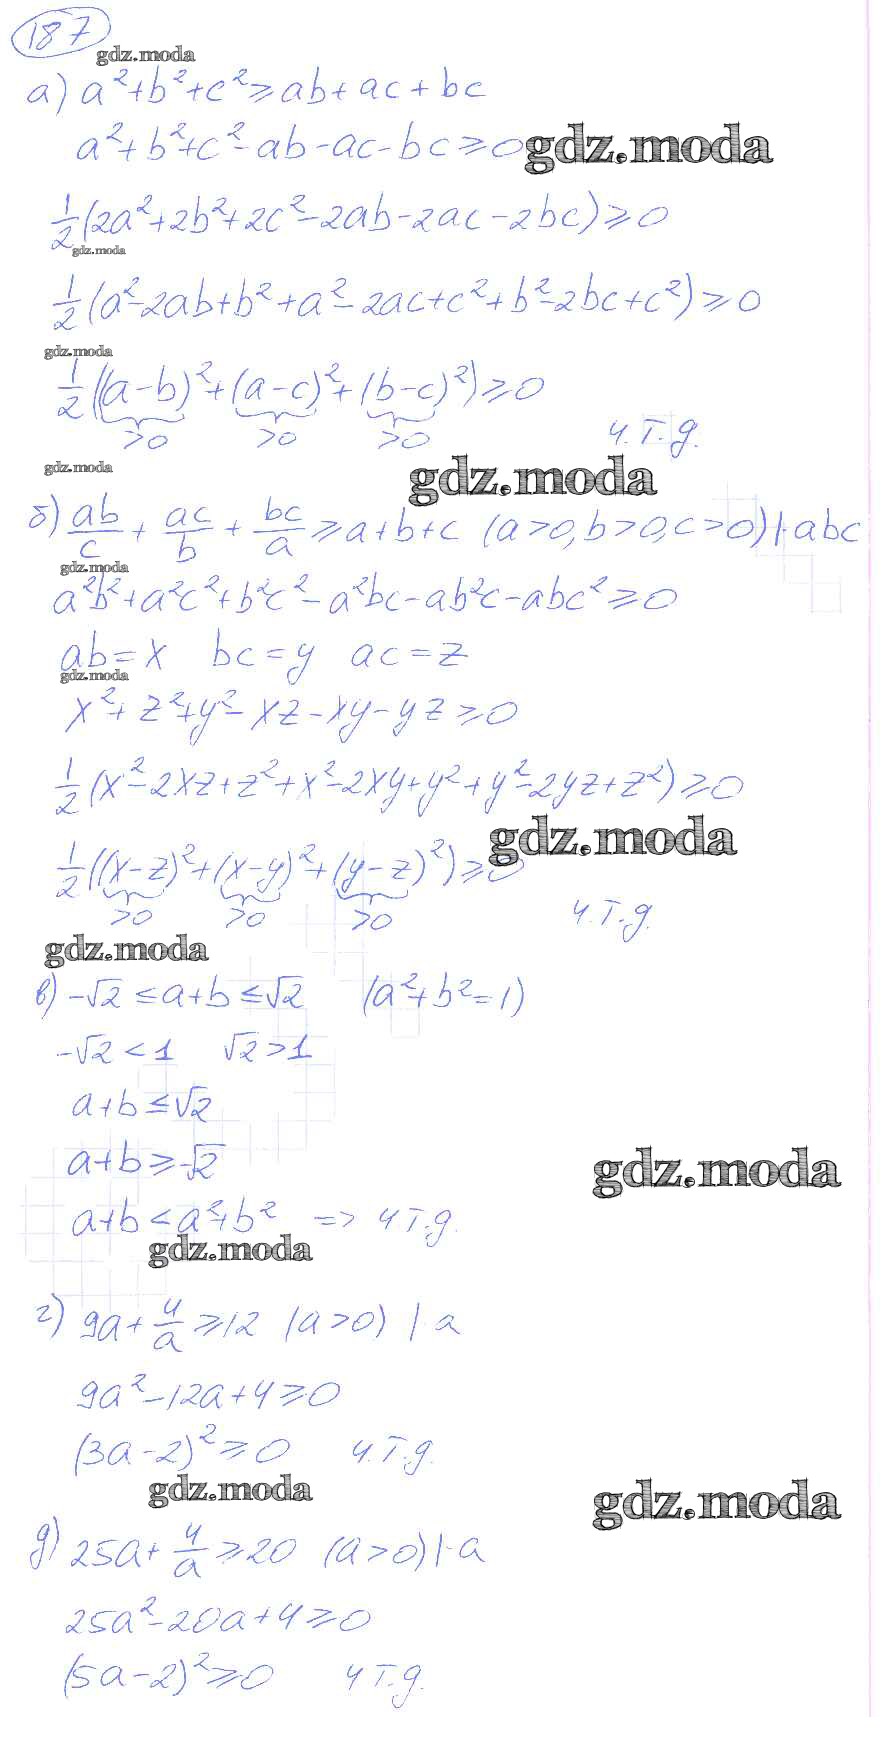 187
gdz.moda
а) a²+b²+c²⩾ab+ac+bc
a²+b²+c²-ab-ac-bc⩾0 gdz.moda
1/2(2a²+2b²+2c²-2ab-2ac-2bc)⩾0
gdz.moda
1/2(a²-2ab+b²+a²-2ac+c²+b²-2bc+c²)⩾0
gdz.moda
1/2((a-b)²+(a-c)²+(b-c)²)⩾0
>0 >0 >0 ч.т.д.
gdz.moda gdz.moda
б) ab/c + ac/b + bc/a ⩾ a+b+c (a>0, b>0, c>0) |·abc
gdz.moda
a²b²+a²c²+b²c²-a²bc-ab²c-abc²⩾0
ab=x bc=y ac=z
gdz.moda
x²+z²+y²-xz-xy-yz⩾0
1/2(x²-2xz+z²+x²-2xy+y²+y²-2yz+z²)⩾0
gdz.moda
1/2((x-z)²+(x-y)²+(y-z)²)⩾0
>0 >0 >0 ч.т.д.
gdz.moda
в) -√2 ≤ a+b ≤ √2 (a²+b²=1)
-√2<1 √2>1
a+b≤√2
a+b⩾-√2 gdz.moda
a+b<a²+b² => ч.т.д.
gdz.moda
г) 9a+4/a⩾12 (a>0) |·a
9a²-12a+4⩾0
(3a-2)²⩾0 ч.т.д.
gdz.moda gdz.moda
д) 25a+4/a⩾20 (a>0)|·a
25a²-20a+4⩾0
(5a-2)²⩾0 ч.т.д.